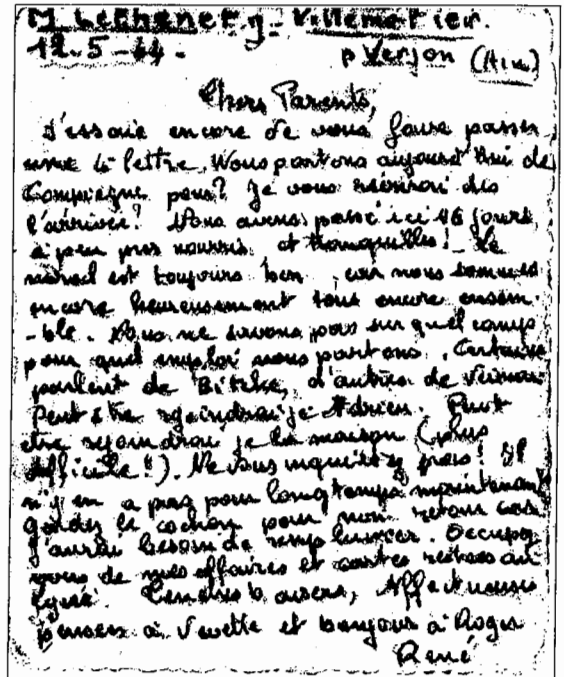 M Lethenet g- Villemotier.
12-5-44. p Verjon (Ain)
Chers Parents,
J'essaie encore de vous faire passer
une 4e lettre. Nous partons aujourd'hui de
Compiègne pour? Je vous écrirai dès
l'arrivée? Nous avons passé ici 16 jours
à peu près nourris et tranquilles! Le
moral est toujours bon, car nous sommes
encore heureusement tous encore ensem-
-ble. Nous ne savons pas sur quel camp
pour quel emploi nous partons. Certains
parlent de Bitche, d'autres de Veimar
Peut être rejoindrai-je Adrien. Peut
être rejoindrai je la maison (plus
difficile!). Ne vous inquiétez pas! Il
n'y en a pas pour longtemps maintenant
gardez le cochon pour mon retour car
j'aurai besoin de
vous de mes affaires et cartes au
Lycée. Tendres baisers, Affectueuses
pensées à et bonjour à Roger
René